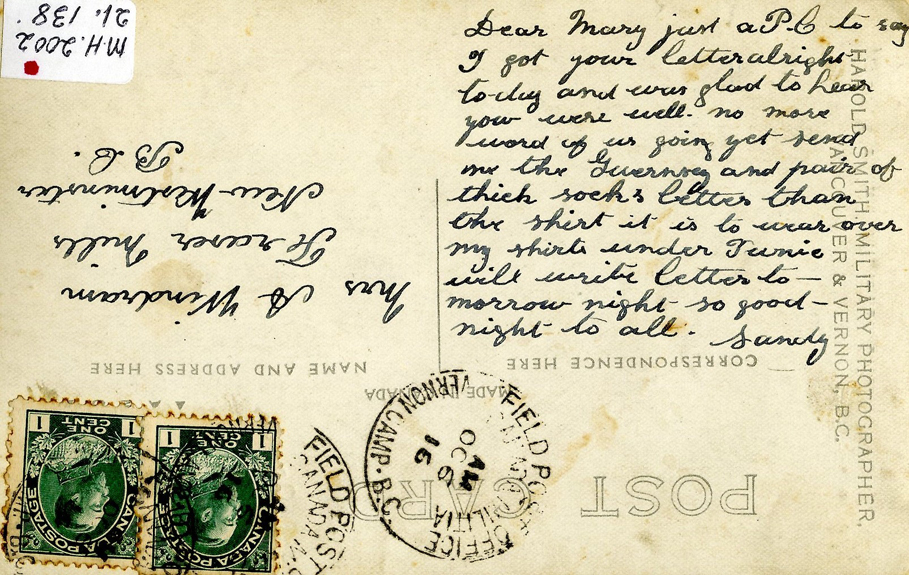 Dear Mary just a P.C to say
I got your letter alright
to-day and was glad to hear
you were well. no more
word of us going yet send
me the Guernsey and pair of
thick socks better than
the shirt it is to wear over
my shirts under Tunic
will write letter to-
morrow night so good-
night to all. Sandy
Mrs A Windram
Fraser Mills
New Westminster
B.C.
MH.2002
21.138.
HAROLD SMITH, MILITARY PHOTOGRAPHER.
VANCOUVER & VERNON, B.C.
POST CARD
MADE IN CANADA
CORRESPONDENCE HERE
NAME AND ADDRESS HERE
FIELD POST OFFICE
CANADIAN MILITIA
AM
OC 6
16
VERNON CAMP. B.C.
FIELD POST
CANADIAN
CANADA POSTAGE
1 ONE CENT 1
CANADA POSTAGE
1 ONE CENT 1